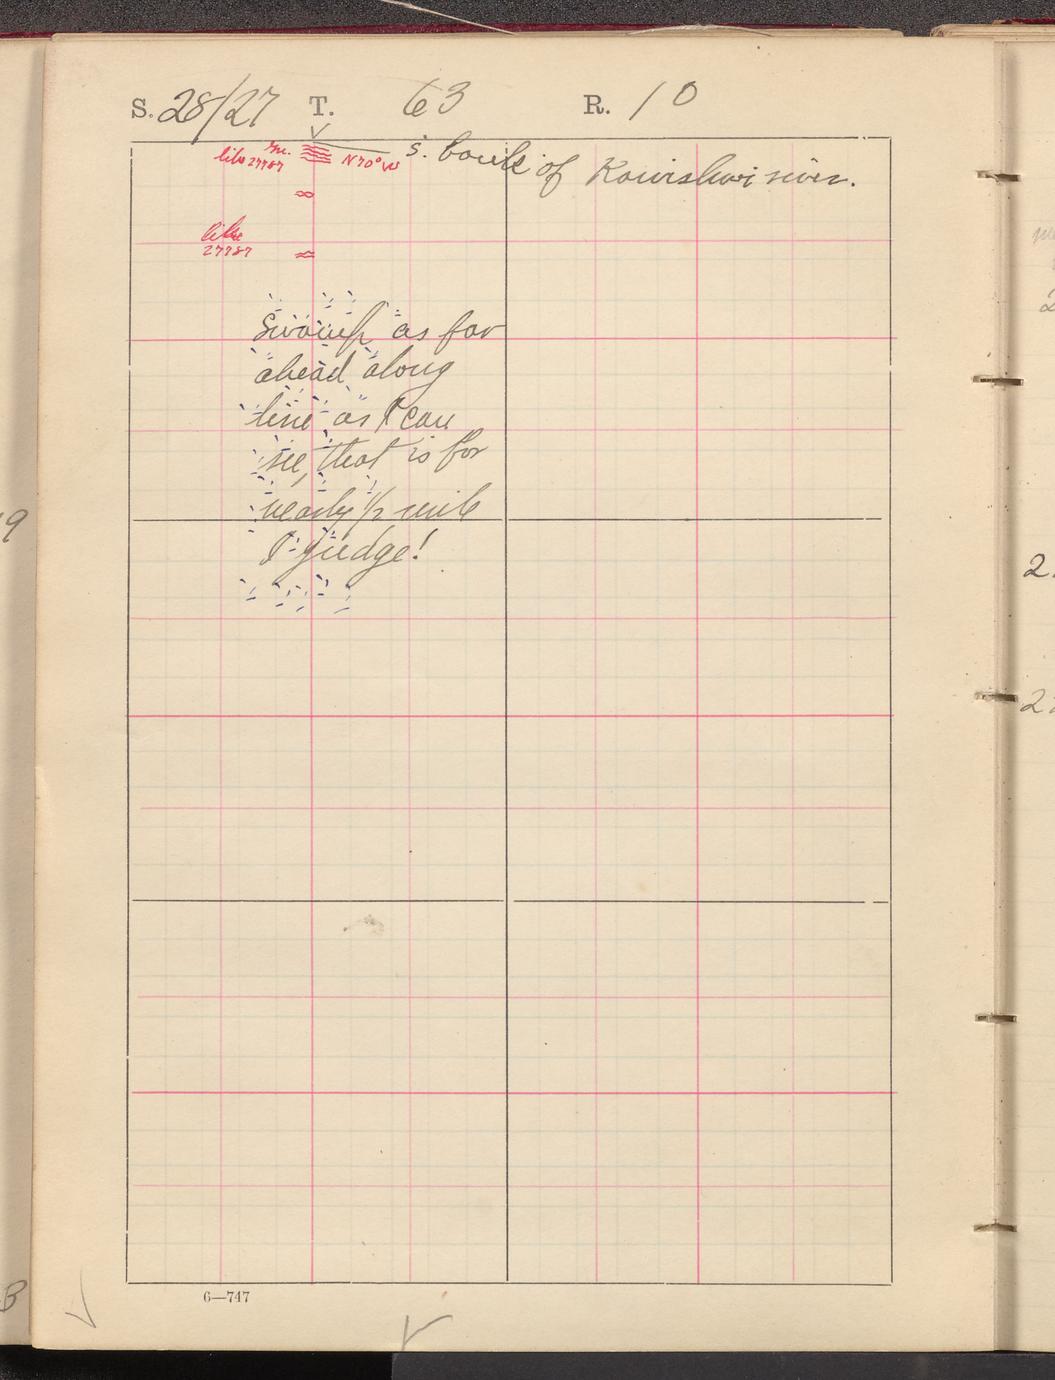 S. 28/27 T. 63 R. 10
s. bank of Kawishwi river.
like 27787
N 70° W
like
27787
Swamp as far
ahead along
line as I can
see, that is for
nearly 1/2 mile
I judge!
6—747